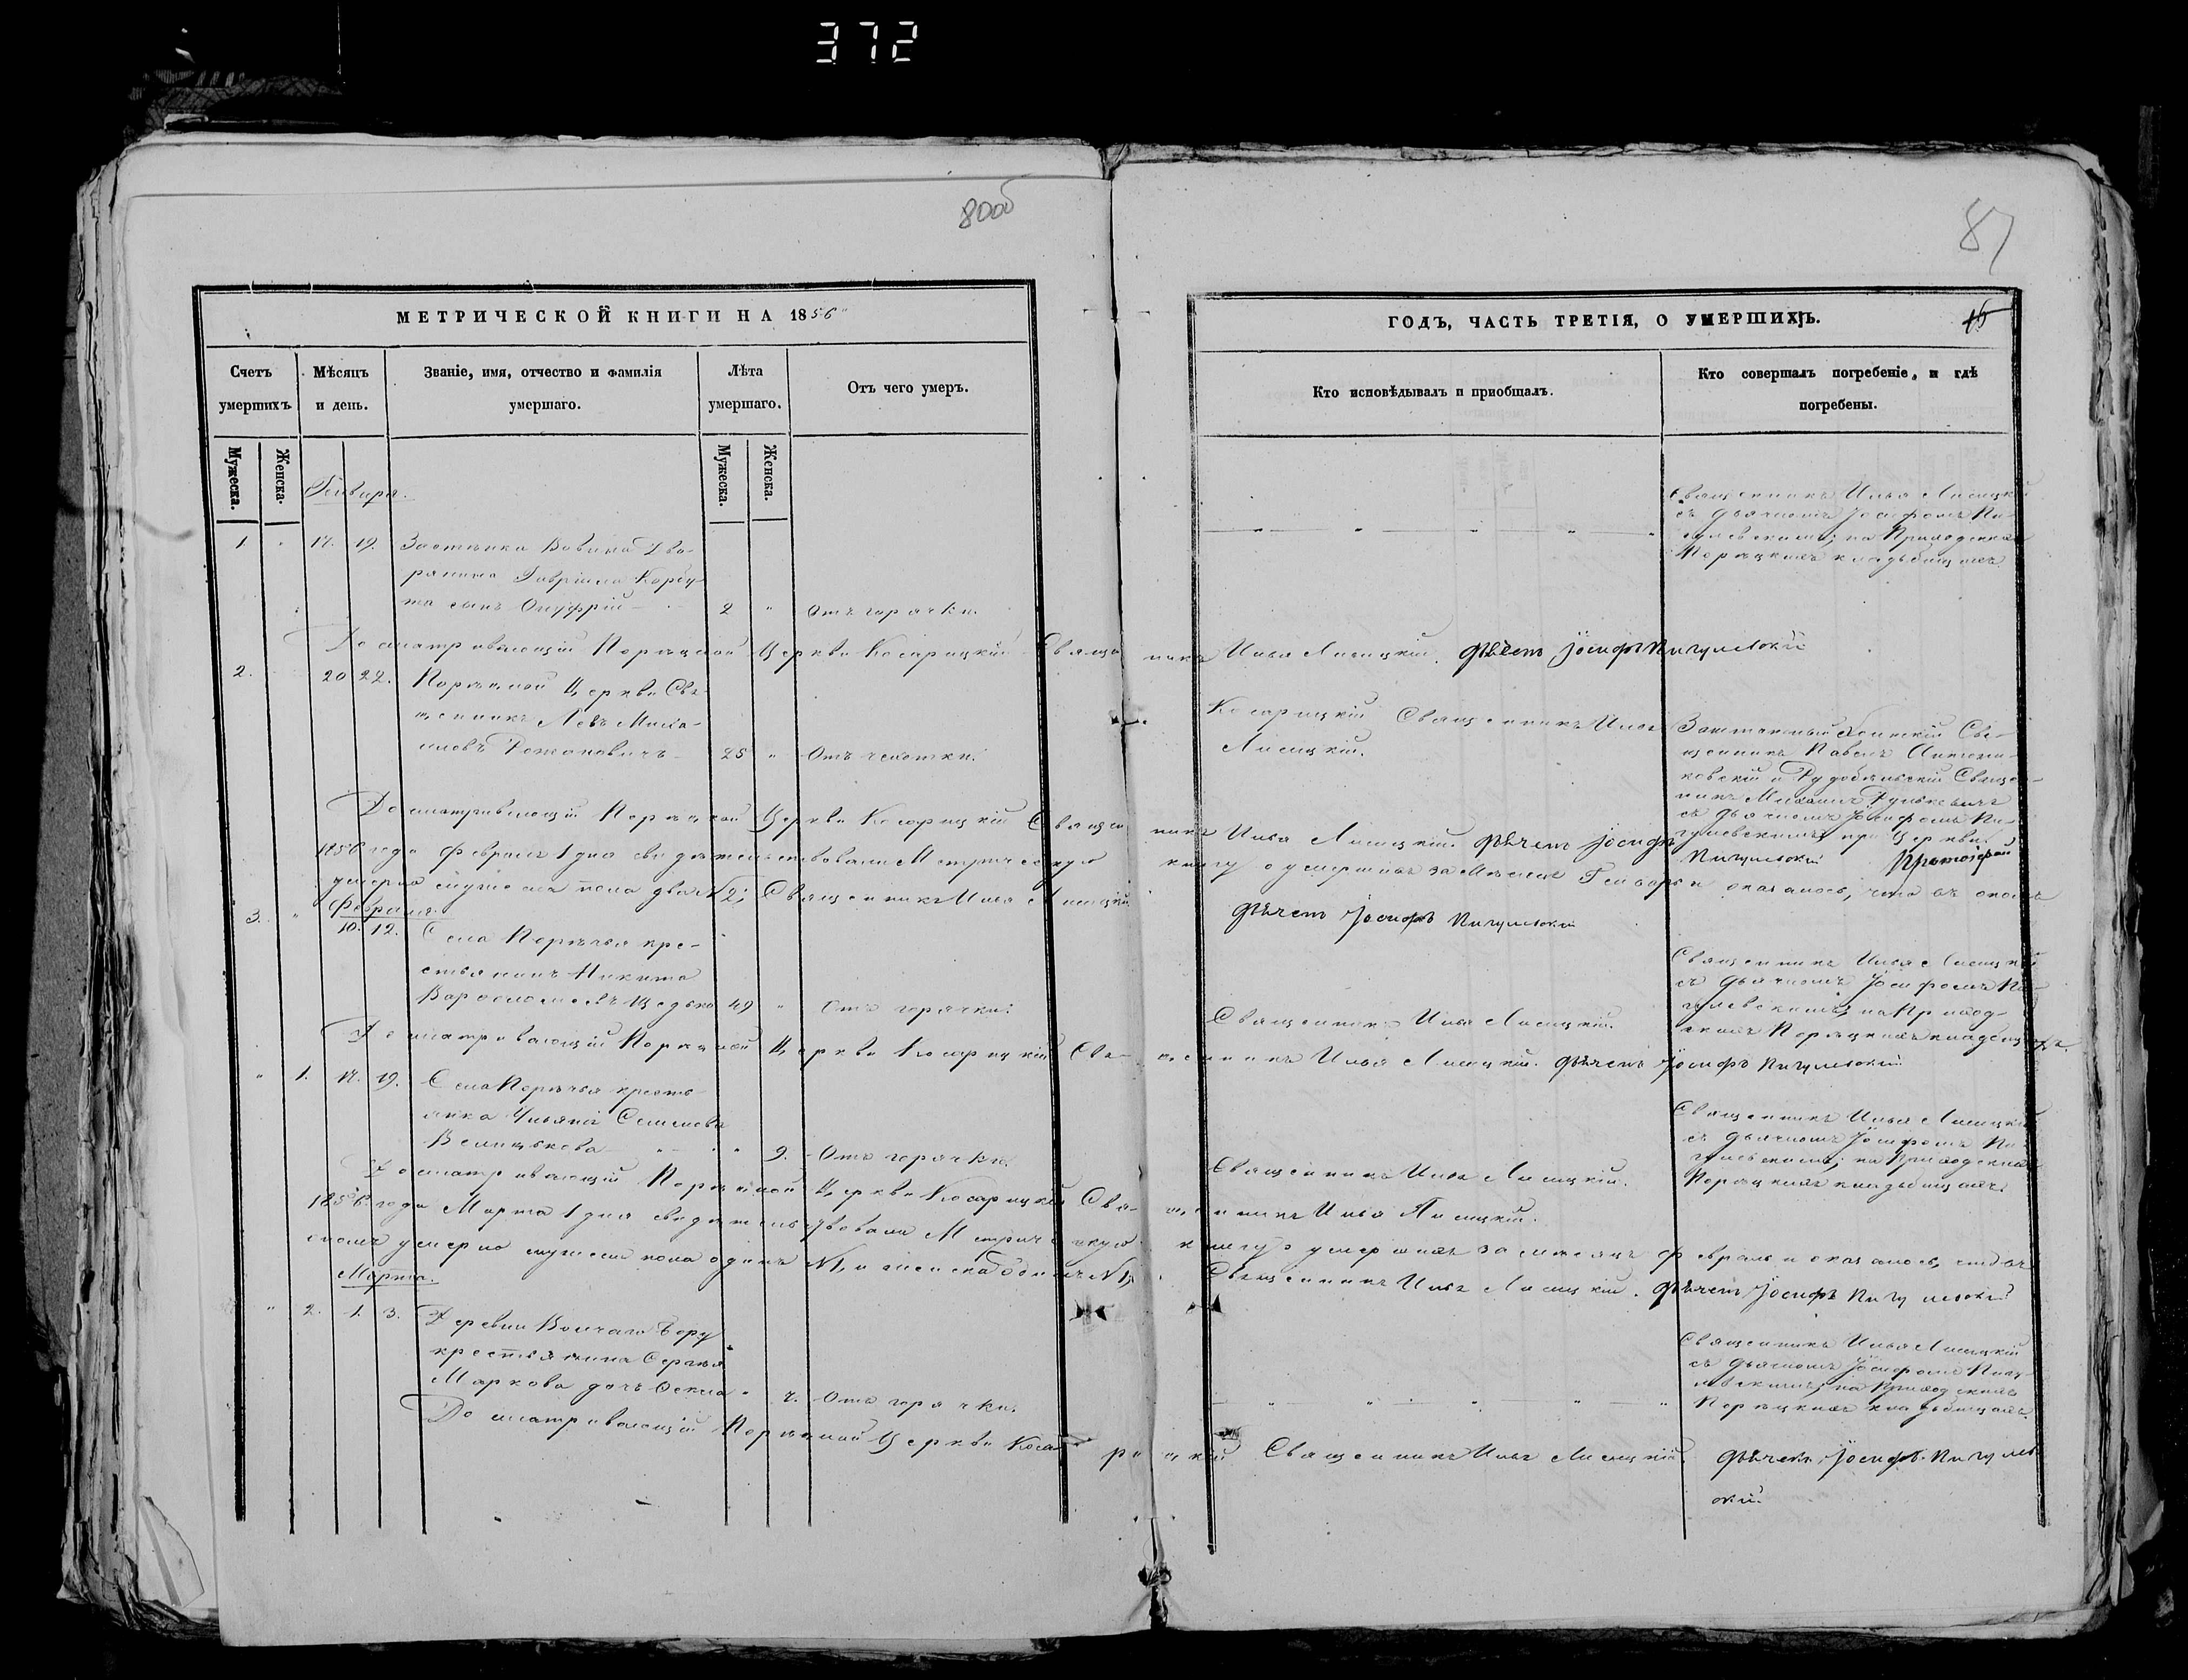 372
80об
87
МЕТРИЧЕСКОЙ КНИГИ НА 1856
ГОДЪ, ЧАСТЬ ТРЕТІЯ, О УМЕРШИХЪ.
Счетъ умершихъ
Мѣсяцъ и день.
Званіе, имя, отчество и фамилія умершаго.
Лѣта умершаго.
Отъ чего умеръ.
Кто исповѣдывалъ и приобщалъ.
Кто совершалъ погребеніе, и гдѣ погребены.
Мужеска.
Женска.
Мужеска.
Женска.
Генваря.
1. 17. 19. Застѣнка Вовина Дво-
рянина Гавріила Корбу
та сынъ Онуфрій 2 " Отъ горячки.
Священникъ Илья Лисицкій
съ дьячкомъ Іосифомъ Пи-
гулевскимъ; на Приходскихъ
Порѣцкихъ кладбищахъ
Досматривающій Порѣцкой Церкви Косарицкій Священникъ Илья Лисицкій. Дьячекъ Іосифъ Пигулевскій
2. 20 22. Порѣцкой Церкви Свя-
щенникъ Левъ Михаи-
ловъ 28 " Отъ чахотки.
Косарицкій Священникъ Илья
Лисицкій.
Заштатный Священникъ Павелъ
и Рудобѣльскій Священ-
никъ Михаилъ
съ дьячкомъ Іосифомъ Пи-
гулевскимъ при Церкви.
Досматривающій Порѣцкой Церкви Косарицкій Священникъ Илья Лисицкій. Дьячекъ Іосифъ
Пигулевскій
1856 года Февраля 1 дня свидѣтельствовали Метрическую книгу о умершихъ за Мѣсяцъ Генварь и оказалось, что въ ономъ
умерло мужескаго пола двое №2; Священникъ Илья Лисицкій Дьячекъ Іосифъ Пигулевскій
Февраля.
3. " 10. 12. Села Порѣчья кре-
стьянинъ Никита
Варѳоломеевъ 49 " Отъ горячки.
Священникъ Илья Лисицкій.
Священникъ Илья Лисицкій
съ дьячкомъ Іосифомъ Пи-
гулевскимъ; на Приход-
скихъ Порѣцкихъ кладбищахъ.
Досматривающій Порѣцкой Церкви Косарицкій Священникъ Илья Лисицкій. Дьячекъ Іосифъ Пигулевскій
" 1. 17. 19. Села Порѣчья кресть-
янка Семенова
9. Отъ горячки.
Священникъ Илья Лисицкій.
Священникъ Илья Лисицкій
съ дьячкомъ Іосифомъ Пи-
гулевскимъ; на Приходскихъ
Порѣцкихъ кладбищахъ.
Досматривающій Порѣцкой Церкви Косарицкій Священникъ Илья Лисицкій.
1856 года Марта 1 дня свидѣтельствовали Метрическую книгу о умершихъ за мѣсяцъ Февраль и оказалось, что въ
ономъ умерло мужеска пола одинъ №1, и женска одинъ №1, Священникъ Илья Лисицкій. Дьячекъ Іосифъ Пигулевскій
Марта.
" 2. 1. 3. Деревни
крестьянина Сергѣя
Маркова дочь Ѳекла 7. Отъ горячки.
Священникъ Илья Лисицкій
съ дьячкомъ Іосифомъ Пигу-
левскимъ; на Приходскихъ
Порѣцкихъ кладбищахъ.
Досматривающій Порѣцкой Церкви Косарицкій Священникъ Илья Лисицкій Дьячекъ Іосифъ Пигулев
скій.